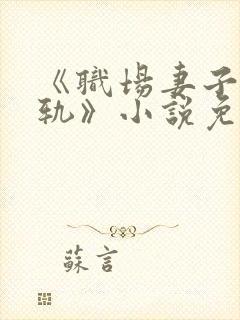 《職場妻子
軌》小說免
蘇言